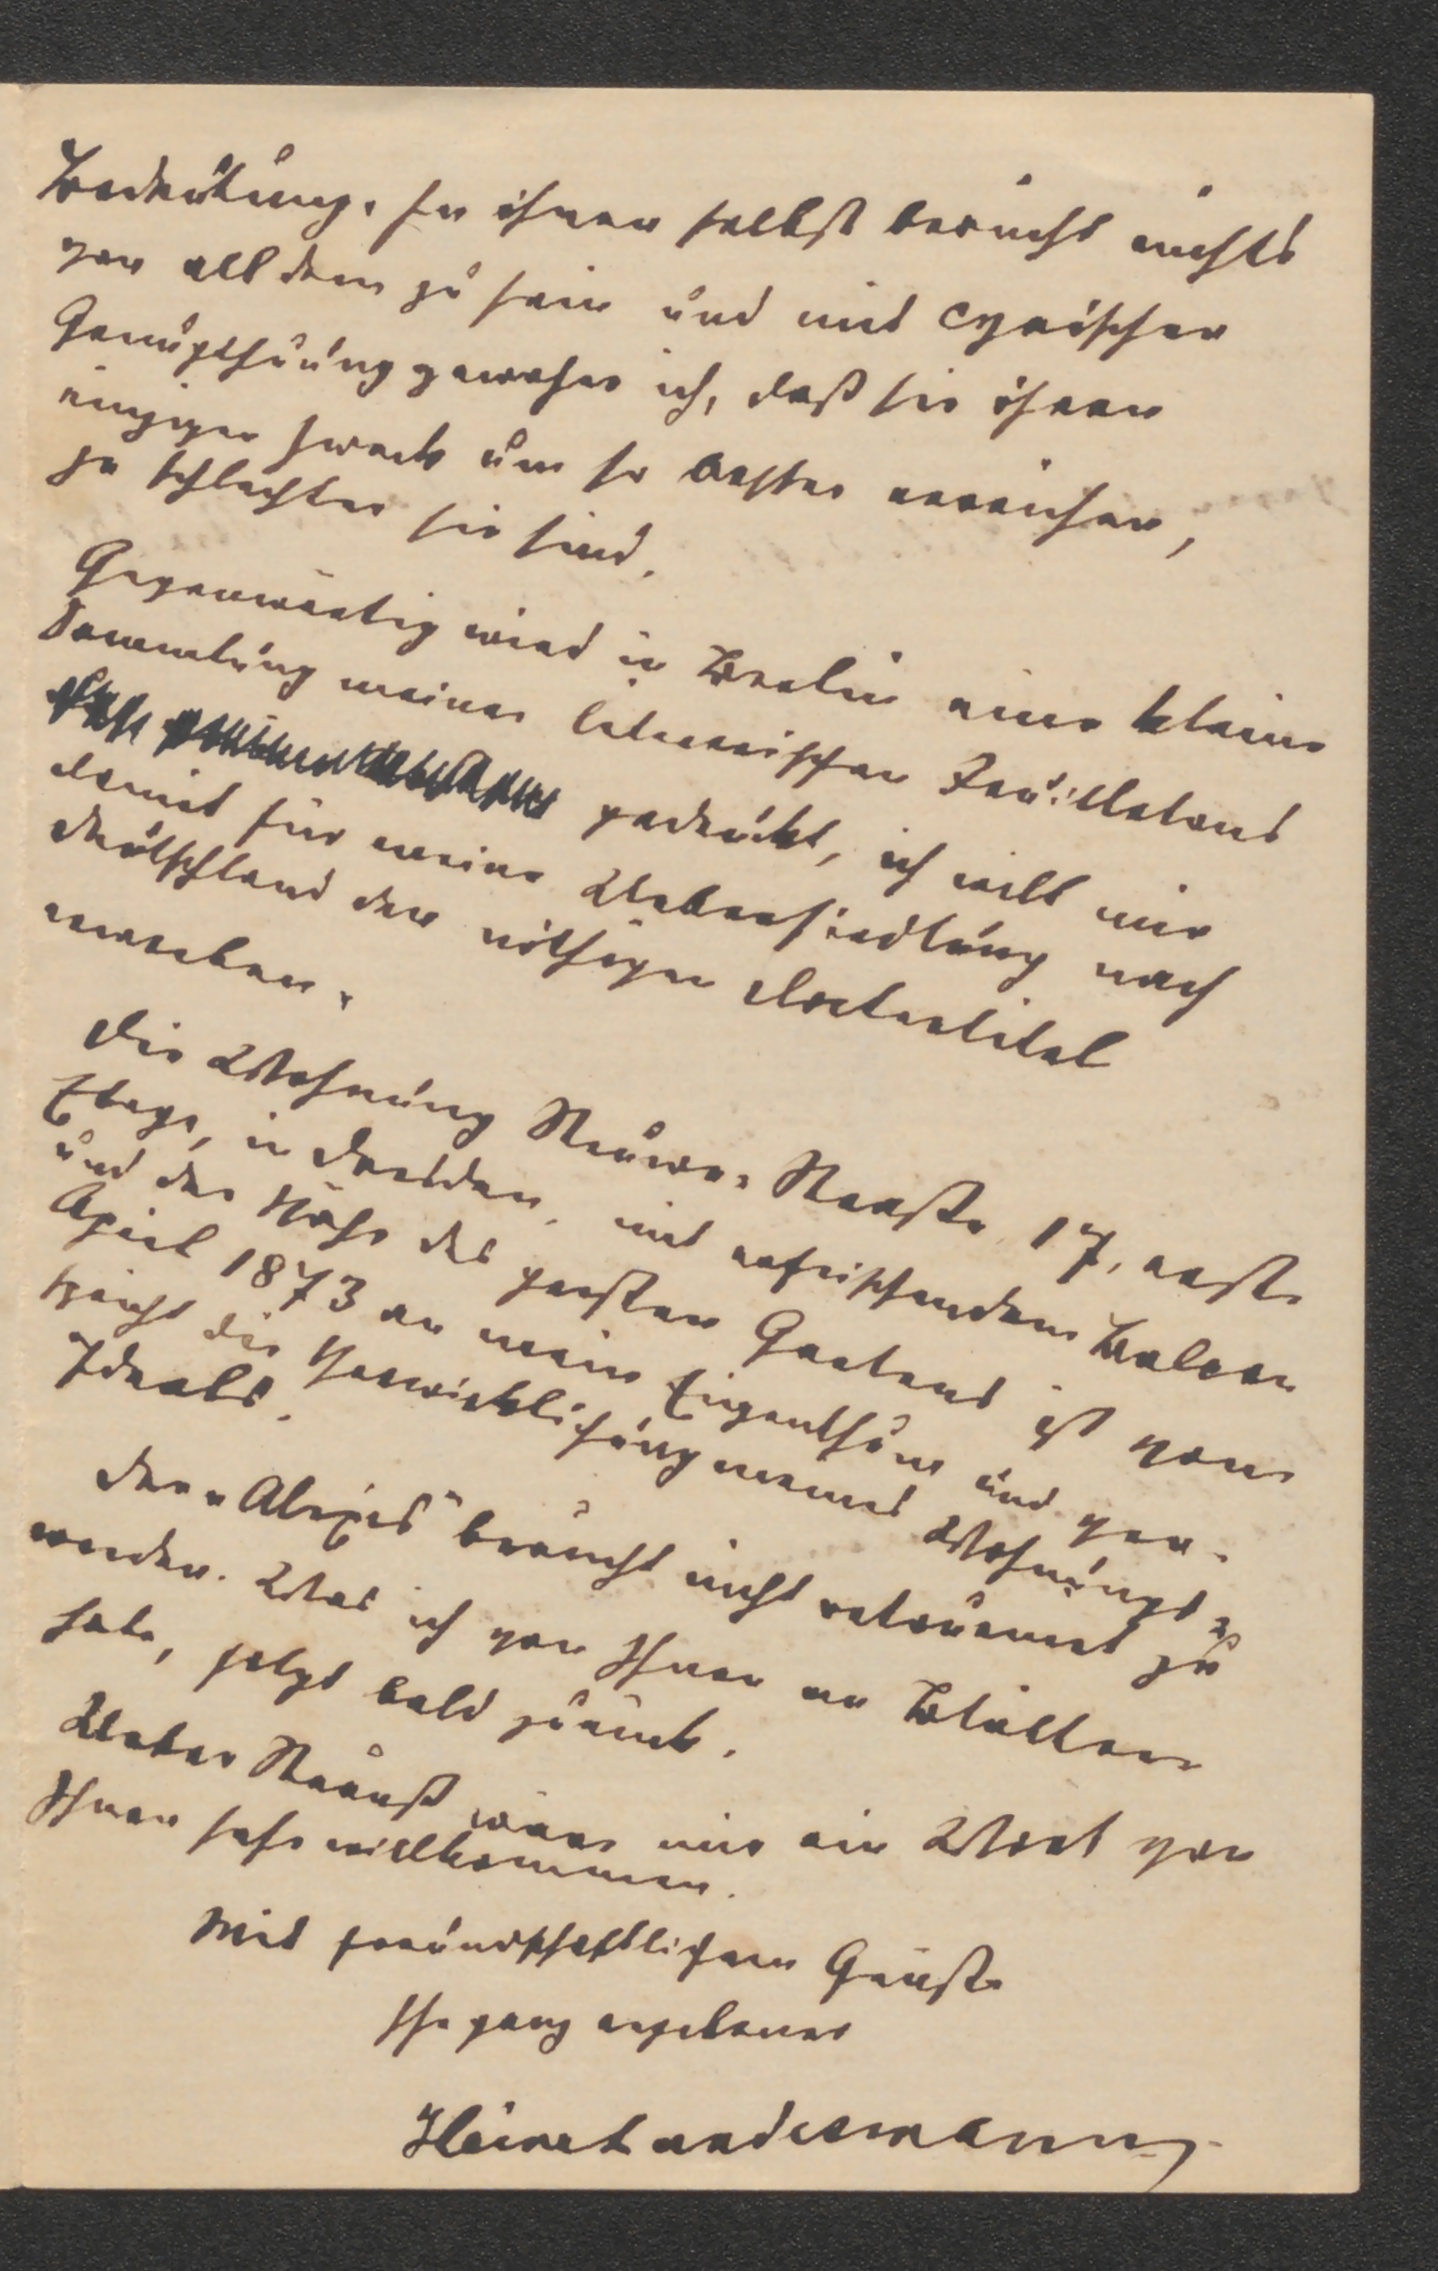 Bedeutung. Zu ihnen selbst braucht nichts
von all dem zu sein und mit cynischer
Genugthuung gewahre ich, daß sie ihren
einzigen Zweck um so besser erreichen,
je schlechter sie sind.
Gegenwärtig wird in Berlin eine kleine
Sammlung meiner literarischen Feuilletons
gedruckt, ich will mir
damit für meine Uebersiedlung nach
Deutschland den nöthigen Doctortitel
erwerben.
Die Wohnung Struve-Straße 17, erste
Etage, in Dresden, mit erfrischendem Balcon
und der Nähe des großen Gartens ist vom
April 1873 an mein Eigenthum und ver-
spricht die Verwirklichung meines Wohnungs-
Ideals.
Der „Alexis" braucht nicht retournirt zu
werden. Was ich von Ihnen an Blättern
habe, folgt bald zurück.
Ueber Strauß wäre mir ein Wort von
Ihnen sehr willkommen.
Mit freundschaftlichem Gruße
Ihr ganz ergebener
Hieronymus Lorm